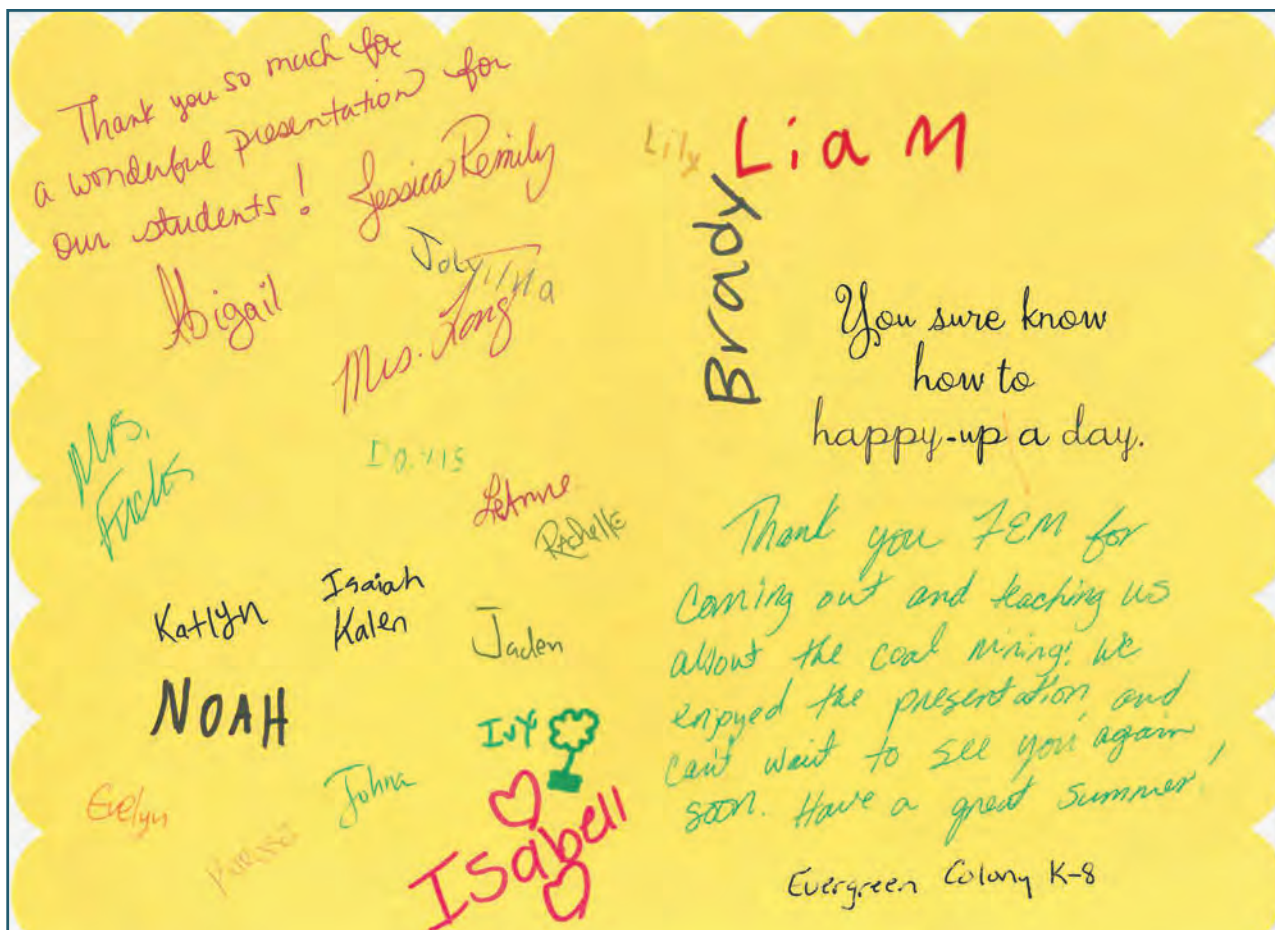 Thank you so much for
a wonderful presentation for
our students!
Jessica Remily
Abigail
Mrs. Long
Mrs.
LeAnne
Rachelle
Katlyn
Isaiah
Kalen
Jaden
NOAH
Ivy
Evelyn
Johna
Isabell
Lily
Liam
Brady
You sure know
how to
happy-up a day.
Thank you FEM for
coming out and teaching us
about the coal mining! We
enjoyed the presentation and
can't wait to see you again
soon. Have a great summer!
Evergreen Colony K-8